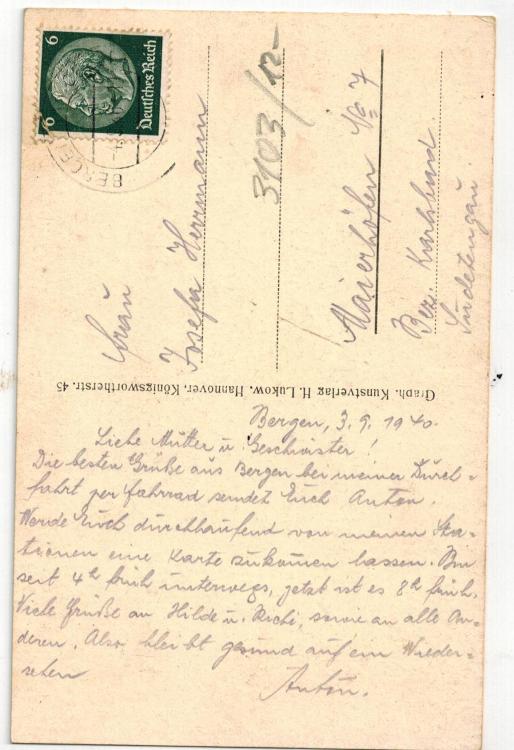 6
6
Deutsches Reich
BERGEN
3103/12-
Frau
Josefa Herrmann
Maierhöfen No 7
Bez. Karlsbad
Sudetengau.
Graph. Kunstverlag H. Lukow, Hannover, Königswortherstr. 45
Bergen, 3.9.1940.
Liebe Mutter u. Geschwister!
Die besten Grüße aus Bergen bei meiner Durch-
fahrt per Fahrrad sendet Euch Anton.
Werde Euch durchlaufend von meinen Sta-
tionen eine Karte zukomen lassen. Bin
seit 4h früh unterwegs, jetzt ist es 8h früh.
Viele Grüße an Hilde u. Richi, sowie an alle An-
deren. Also bleibt gesund auf ein Wieder-
sehen
Anton.